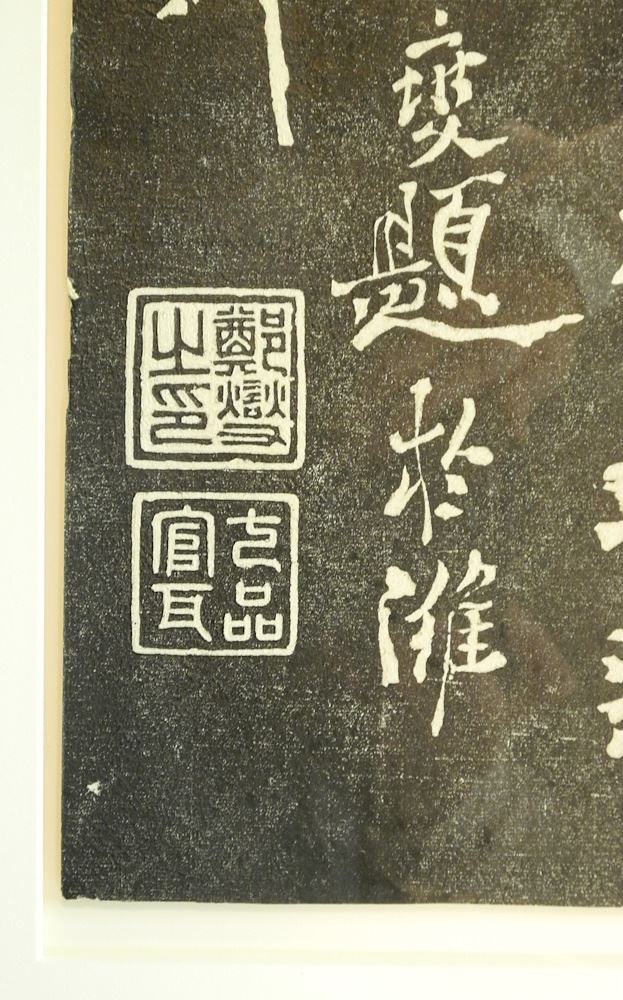 燮題於濰
鄭燮之印
七品官耳